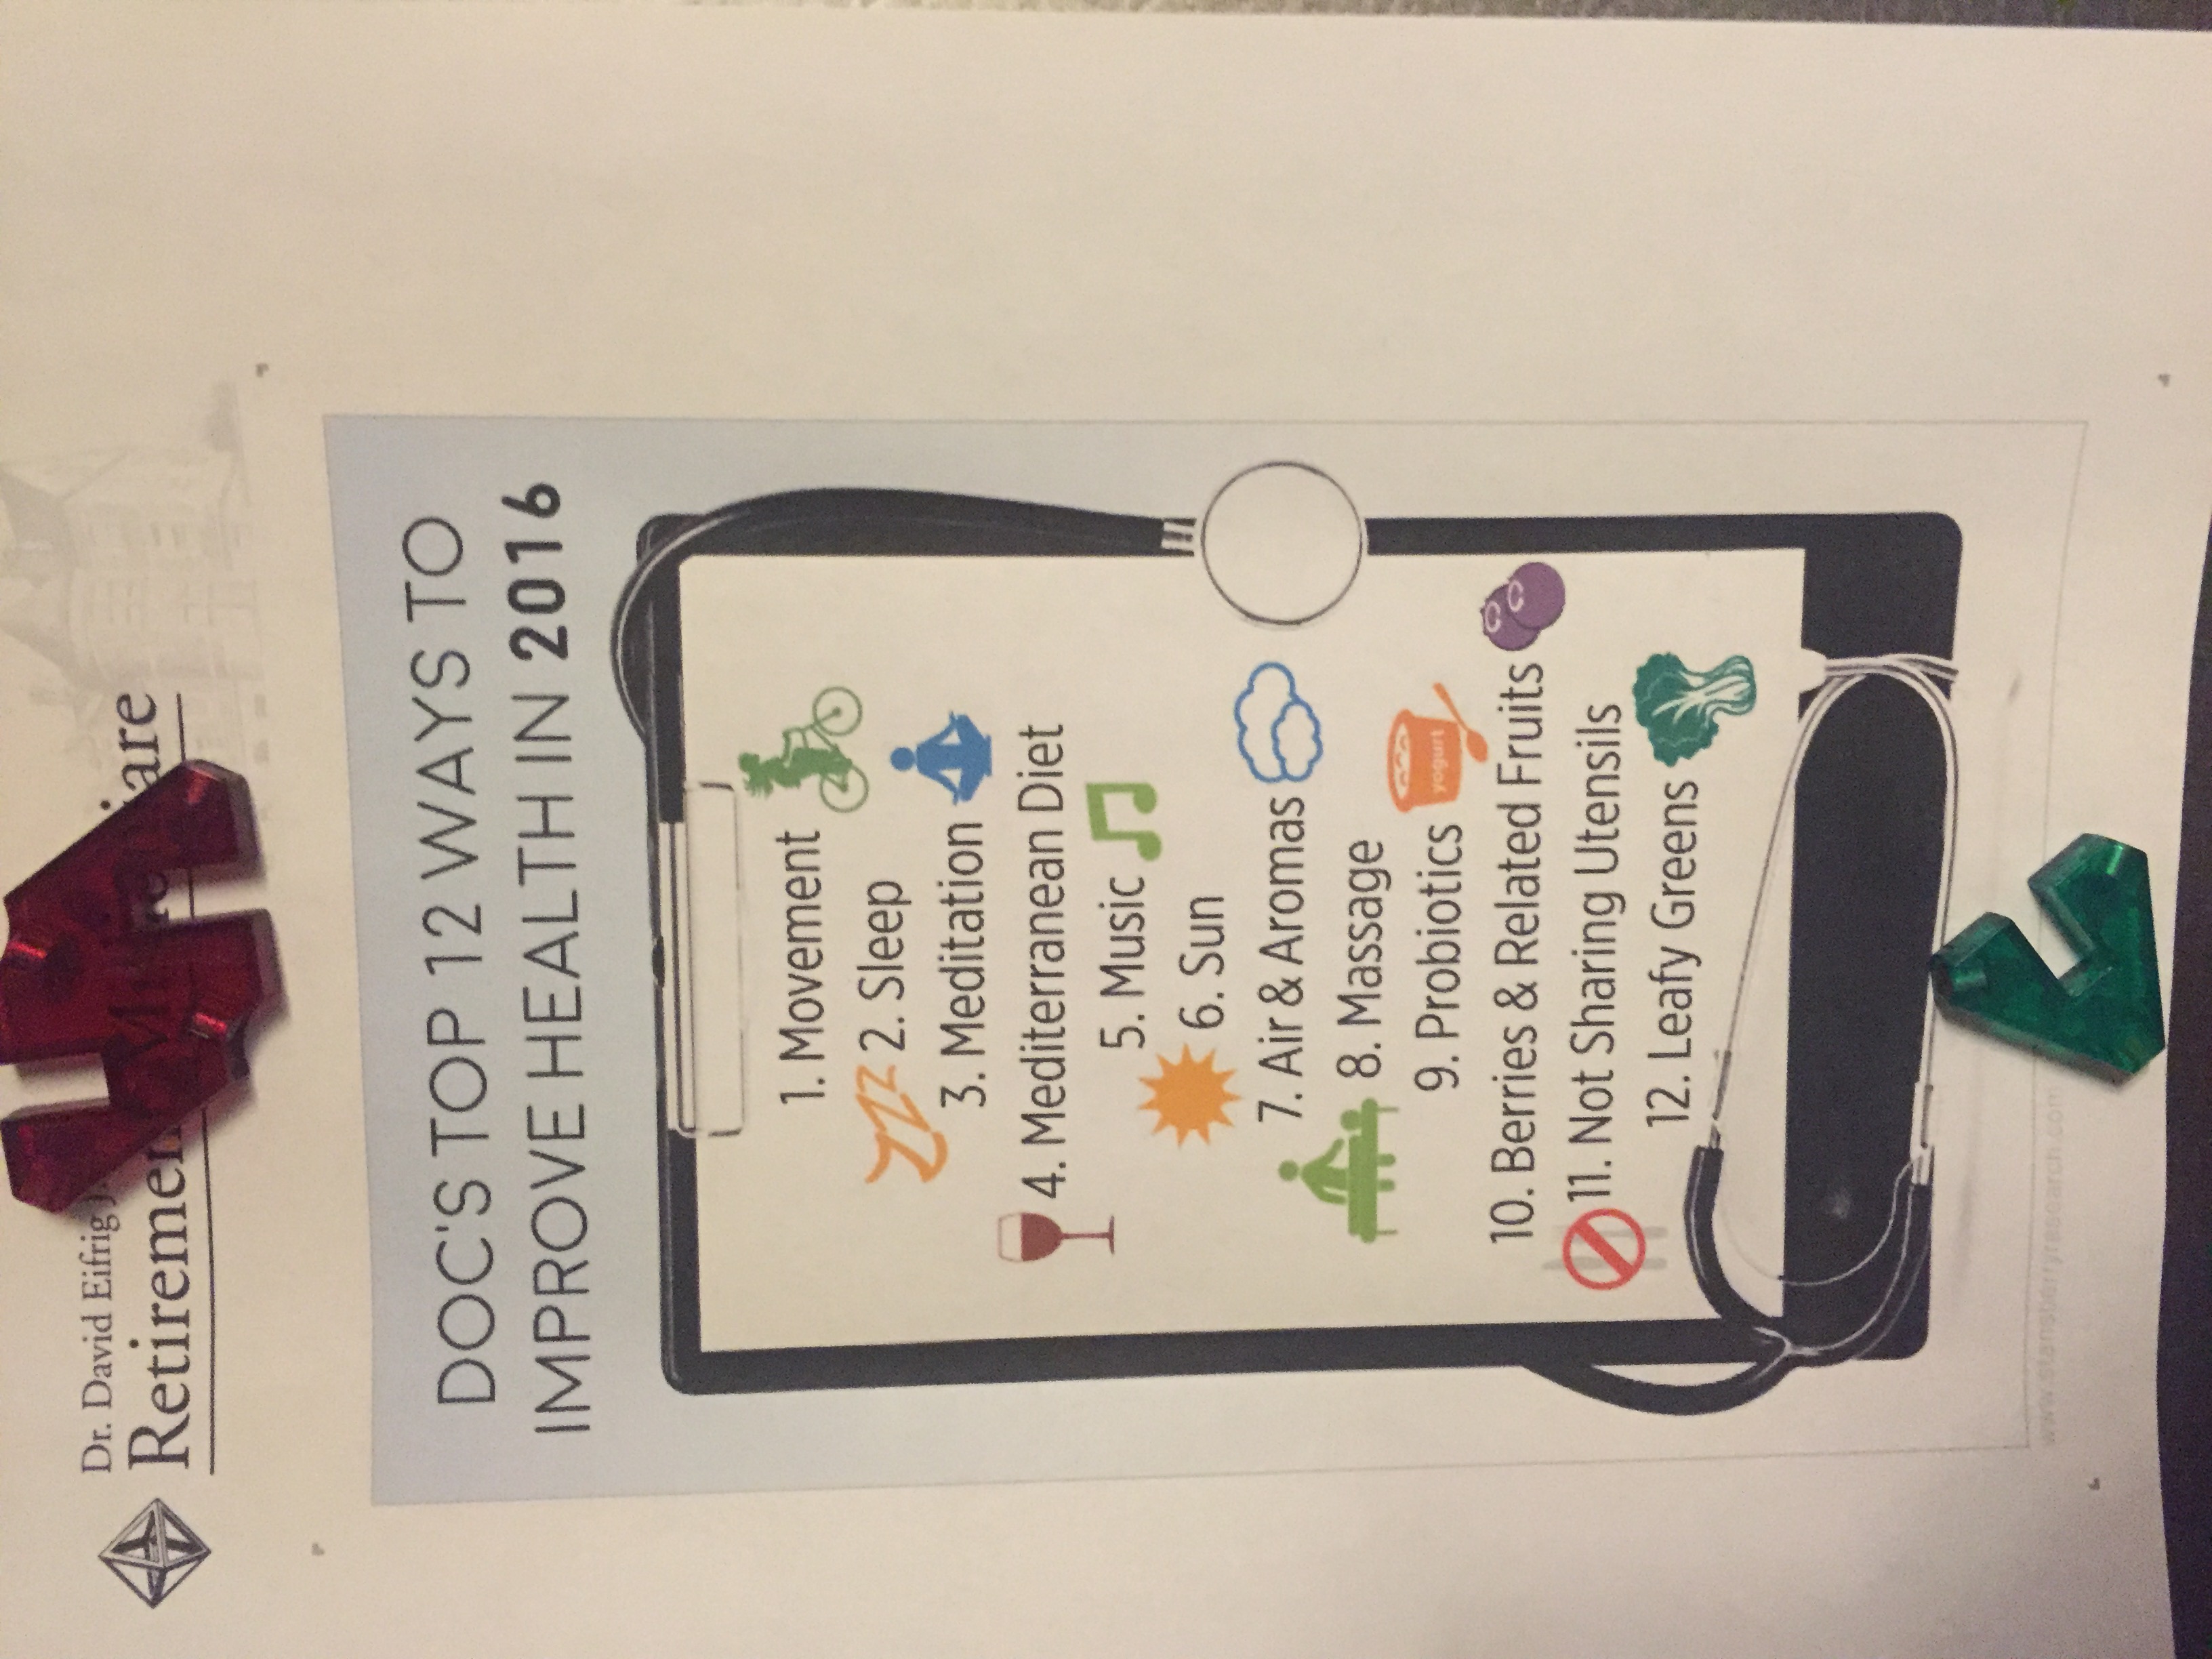 Dr. David Eifrig
DOC'S TOP 12 WAYS TO
IMPROVE HEALTH IN 2016
1. Movement
2. Sleep
3. Meditation
4. Mediterranean Diet
5. Music
6. Sun
7. Air & Aromas
8. Massage
9. Probiotics
yogurt
10. Berries & Related Fruits
11. Not Sharing Utensils
12. Leafy Greens
www.stansberryresearch.com